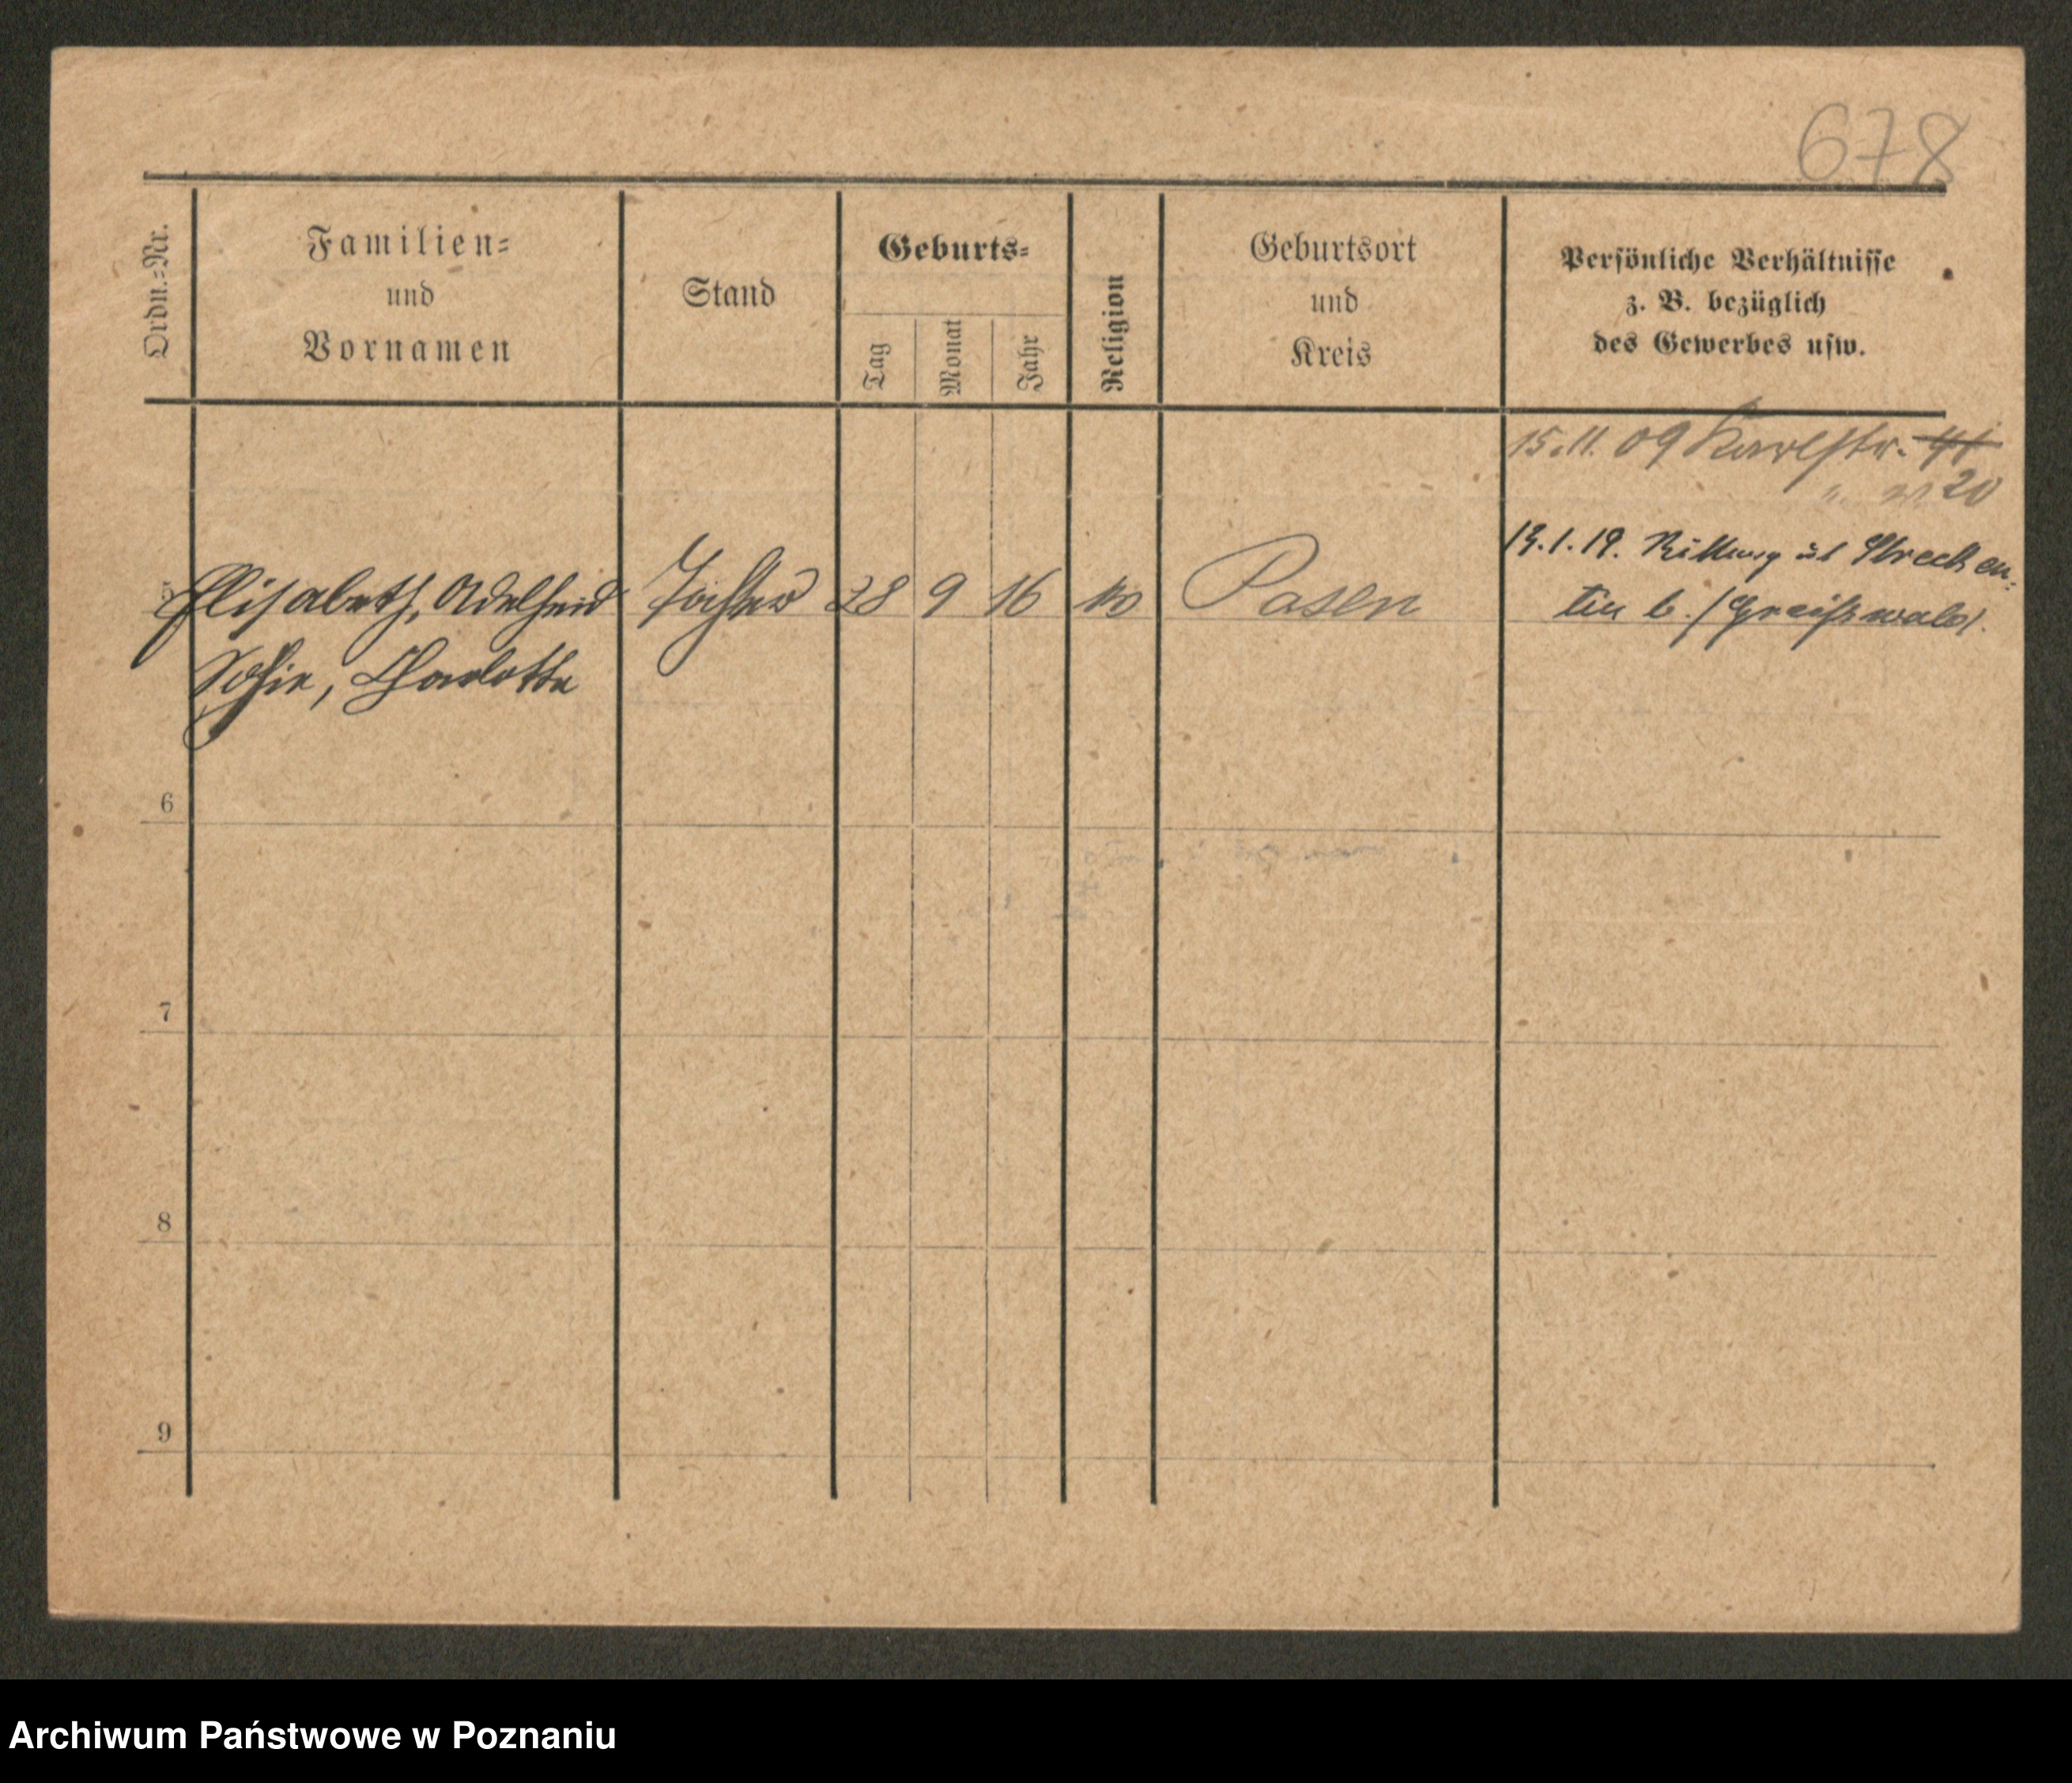 678
Ordn.-Nr.
Familien-
und
Vornamen
Stand
Geburts-
Tag
Monat
Jahr
Religion
Geburtsort
und
Kreis
Persönliche Verhältnisse
z. B. bezüglich
des Gewerbes usw.
15.11.09 Karlstr. 41
" 20
5 Elisabeth, Adelheid Tochter 28 9 16 Posen
Sofie, Charlotte
1.19. Strechen-
tin b./Greifswald.
6
7
8
9
Archiwum Państwowe w Poznaniu